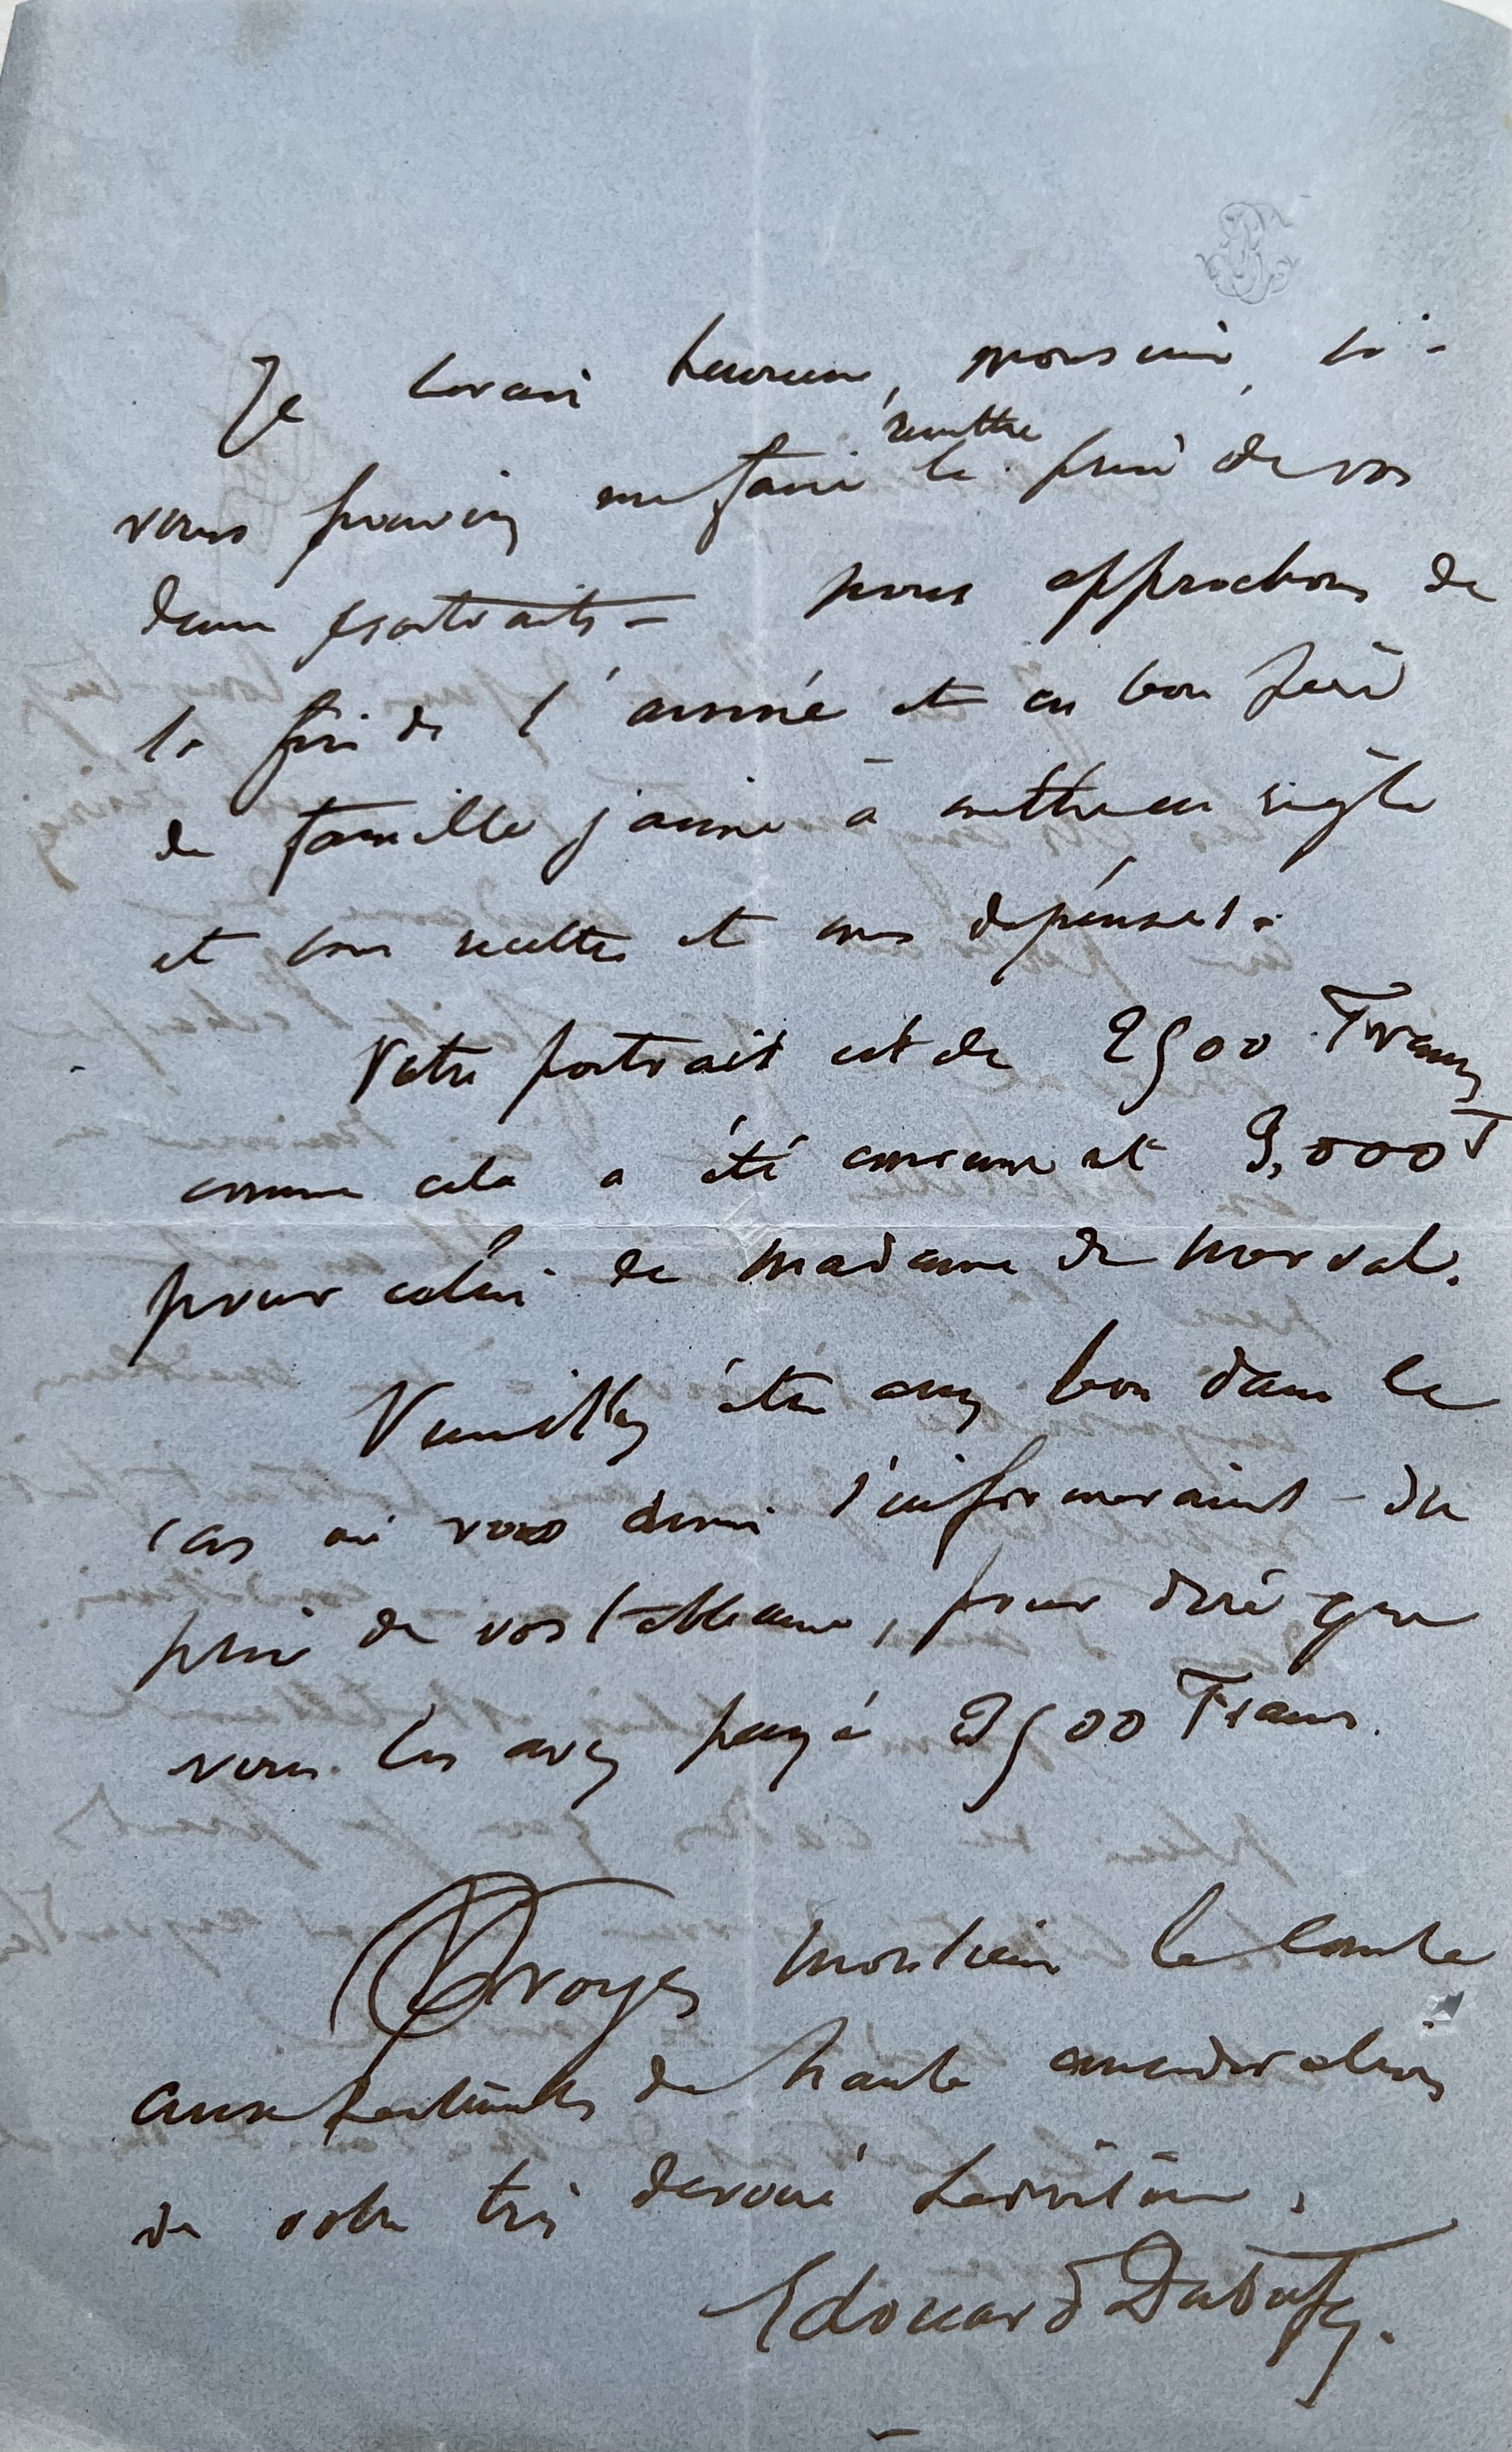 Je serais heureux, monsieur, si
vous pouviez me faire remettre le prix de vos
deux portraits = nous approchons de
la fin de l'année et en bon père
de famille j'aime à mettre en règle
et mes recettes et mes dépenses.
Votre portrait est de 2500 Francs
comme cela a été convenu et 3,000 F
pour celui de madame de Norval.
Veuillez être assez bon dans le
cas où vous amis s'informeraient du
prix de vos tableaux, pour dire que
vous les avez payé 3500 Francs.
Croyez monsieur le Comte
aux sentiments de haute considération
de votre très dévoué serviteur,
Edouard Dubufe.